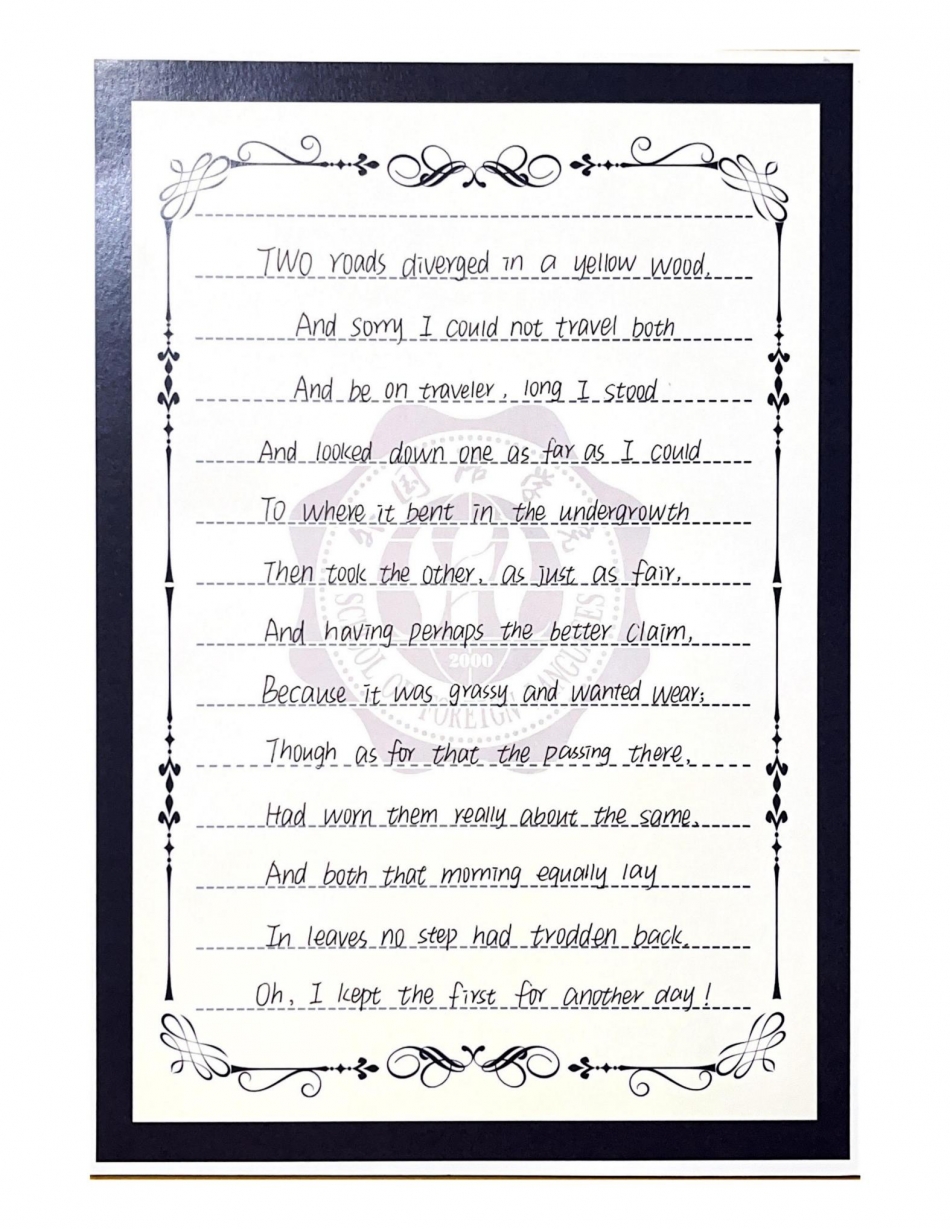 TWO roads diverged in a yellow wood,
And sorry I could not travel both
And be on traveler, long I stood
And looked down one as far as I could
To where it bent in the undergrowth
Then took the other, as just as fair,
And having perhaps the better claim,
Because it was grassy and wanted wear;
Though as for that the passing there,
Had worn them really about the same,
And both that morning equally lay
In leaves no step had trodden back.
Oh, I kept the first for another day!
外国语学院
SCHOOL OF FOREIGN LANGUAGES
2000